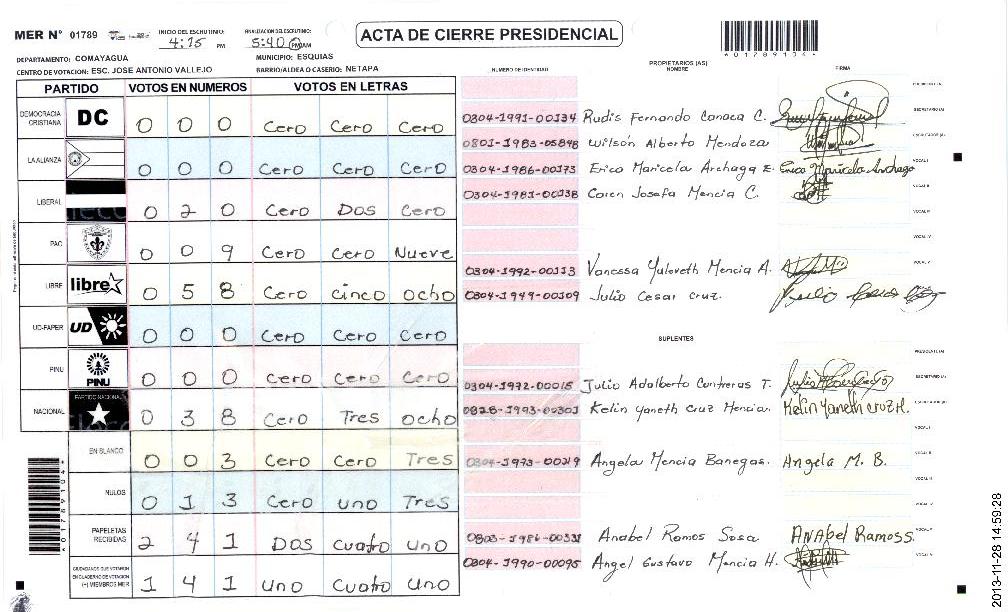 MER N° 01789 INICIO DEL ESCRUTINIO: 4:15 PM FINALIZACION DEL ESCRUTINIO: 5:40 PM AM
ACTA DE CIERRE PRESIDENCIAL
*01789104*
DEPARTAMENTO: COMAYAGUA MUNICIPIO: ESQUIAS
CENTRO DE VOTACION: ESC. JOSE ANTONIO VALLEJO BARRIO/ALDEA O CASERIO: NETAPA
PARTIDO VOTOS EN NUMEROS VOTOS EN LETRAS
DEMOCRACIA CRISTIANA DC 0 0 0 Cero Cero Cero
LA ALIANZA 0 0 0 Cero Cero Cero
LIBERAL 0 2 0 Cero Dos Cero
PAC 0 0 9 Cero Cero Nueve
LIBRE libre 0 5 8 Cero cinco ocho
UD-FAPER UD 0 0 0 Cero Cero Cero
PINU PINU 0 0 0 Cero Cero Cero
NACIONAL PARTIDO NACIONAL 0 3 8 Cero Tres ocho
EN BLANCO 0 0 3 Cero Cero Tres
NULOS 0 1 3 Cero uno Tres
PAPELETAS RECIBIDAS 2 4 1 Dos cuatro uno
CIUDADANOS QUE VOTARON EN CUADERNO DE VOTACION (+) MIEMBROS MER 1 4 1 uno cuatro uno
*01789104*
NUMERO DE IDENTIDAD PROPIETARIOS (AS) NOMBRE FIRMA
PRESIDENTE (A)
0304-1991-00134 Rudis Fernando Canoca C. SECRETARIO (A)
0801-1983-05848 Wilson Alberto Mendoza ESCRUTADOR (A)
0304-1986-00173 Erica Maricela Archaga E. Erica Maricela Archaga VOCAL I
0304-1981-00138 Caren Josefa Mencia C. VOCAL II
VOCAL III
VOCAL IV
0304-1992-00113 Vanessa Yuloveth Mencia A. VOCAL V
0304-1949-00109 Julio Cesar cruz.
SUPLENTES
PRESIDENTE (A)
0304-1972-00015 Julio Adalberto Contreras T. SECRETARIO (A)
0828-1993-00301 Kelin Yaneth cruz Mencia. Kelin Yaneth cruz M. ESCRUTADOR (A)
VOCAL I
0304-1973-00219 Angela Mencia Banegas. Angela M. B. VOCAL II
VOCAL III
VOCAL IV
0803-1986-00331 Anabel Ramos Sosa ANAbel RamosS. VOCAL V
0304-1990-00095 Angel Gustavo Mencia H.
2013-11-28 14:59:28